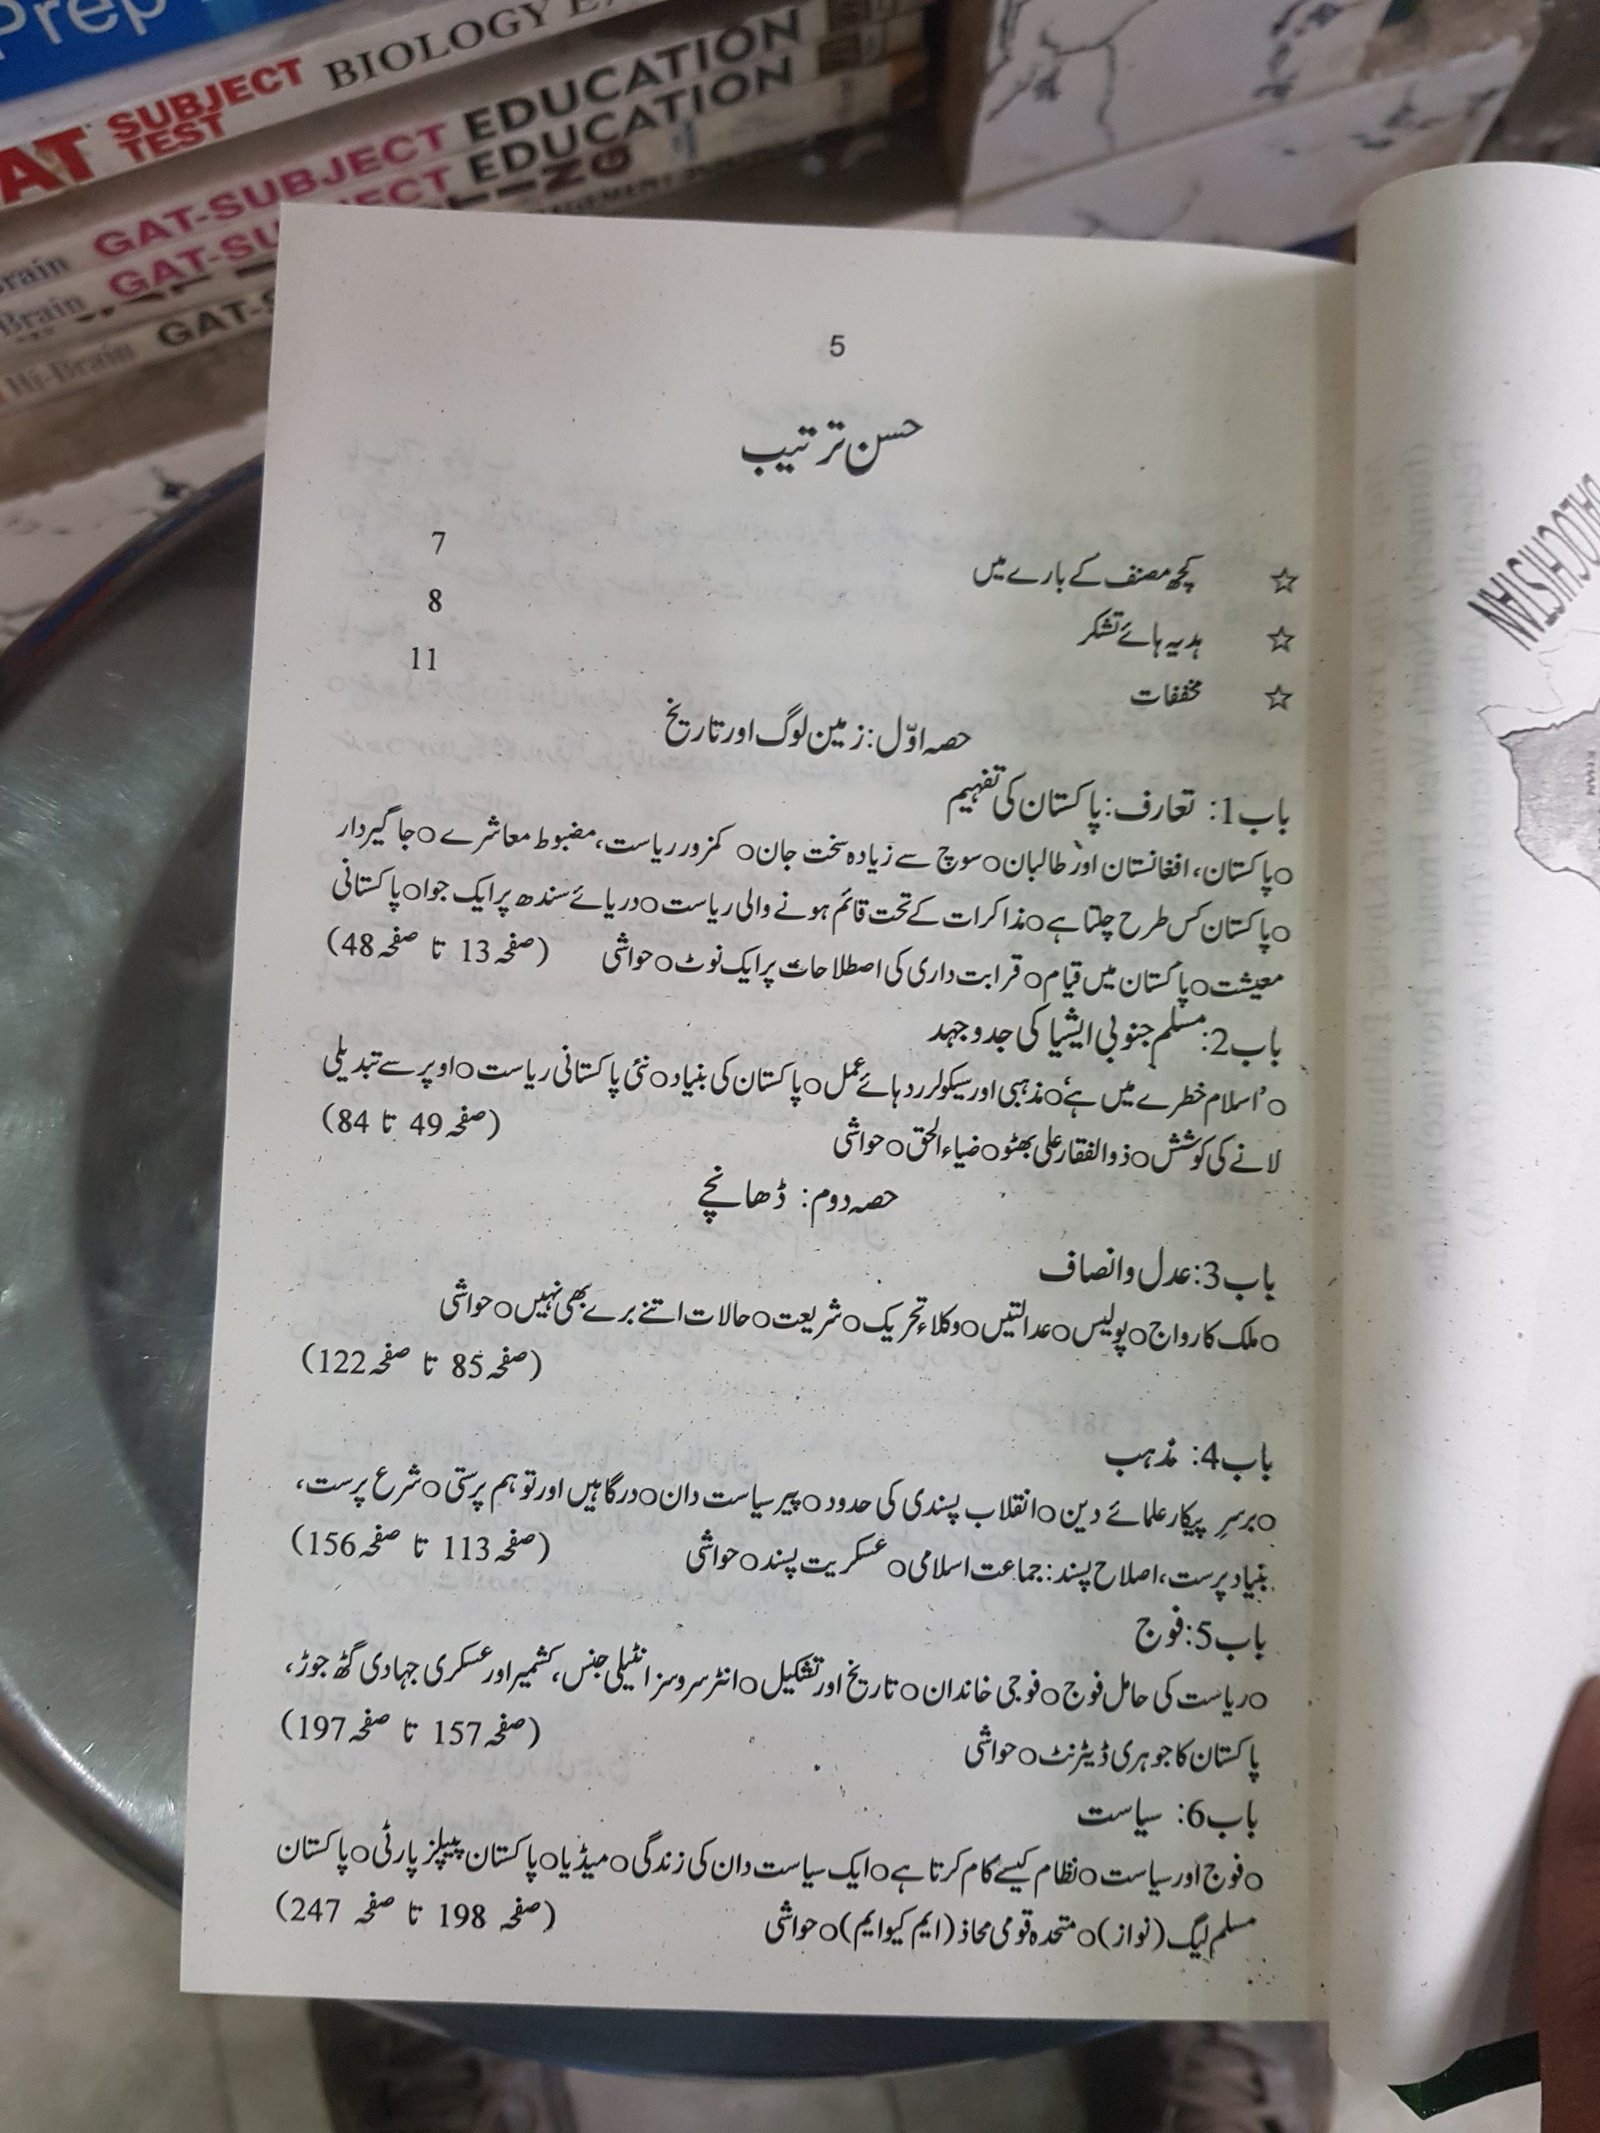 Prep
AT SUBJECT TEST BIOLOGY
GAT-SUBJECT EDUCATION
Brain GAT-SUBJECT EDUCATION
Hi-Brain GAT-S
5
حسن ترتیب
☆ کچھ مصنف کے بارے میں 7
☆ ہدیہ ہائے تشکر 8
☆ مخففات 11
حصہ اوّل: زمین لوگ اور تاریخ
باب1: تعارف: پاکستان کی تفہیم
○پاکستان، افغانستان اور طالبان○سوچ سے زیادہ سخت جان○ کمزور ریاست، مضبوط معاشرے○جاگیردار
○پاکستان کس طرح چلتا ہے○مذاکرات کے تحت قائم ہونے والی ریاست○دریائے سندھ پر ایک جوا○پاکستانی
معیشت○پاکستان میں قیام○قرابت داری کی اصطلاحات پر ایک نوٹ○حواشی (صفحہ13 تا صفحہ48)
باب2: مسلم جنوبی ایشیا کی جدوجہد
○’اسلام خطرے میں ہے‘○مذہبی اور سیکولر ردہائے عمل○پاکستان کی بنیاد○نئی پاکستانی ریاست○اوپر سے تبدیلی
لانے کی کوشش○ذوالفقار علی بھٹو○ضیاء الحق○حواشی (صفحہ49 تا 84)
حصہ دوم: ڈھانچے
باب3: عدل و انصاف
○ملک کا رواج○پولیس○عدالتیں○وکلاء تحریک○شریعت○حالات اتنے برے بھی نہیں○حواشی
(صفحہ85 تا صفحہ122)
باب4: مذہب
○برسرِ پیکار علمائے دین○انقلاب پسندی کی حدود○پیر سیاست دان○درگاہیں اور توہم پرستی○شرع پرست،
بنیاد پرست، اصلاح پسند: جماعت اسلامی○عسکریت پسند○حواشی (صفحہ113 تا صفحہ156)
باب5: فوج
○ریاست کی حامل فوج○فوجی خاندان○تاریخ اور تشکیل○انٹر سروسز انٹیلی جنس، کشمیر اور عسکری جہادی گٹھ جوڑ،
پاکستان کا جوہری ڈیٹرنٹ○حواشی (صفحہ157 تا صفحہ197)
باب6: سیاست
○فوج اور سیاست○نظام کیسے کام کرتا ہے○ایک سیاست دان کی زندگی○میڈیا○پاکستان پیپلز پارٹی○پاکستان
مسلم لیگ (نواز)○متحدہ قومی محاذ (ایم کیو ایم)○حواشی (صفحہ 198 تا صفحہ 247)
BALOCHISTAN